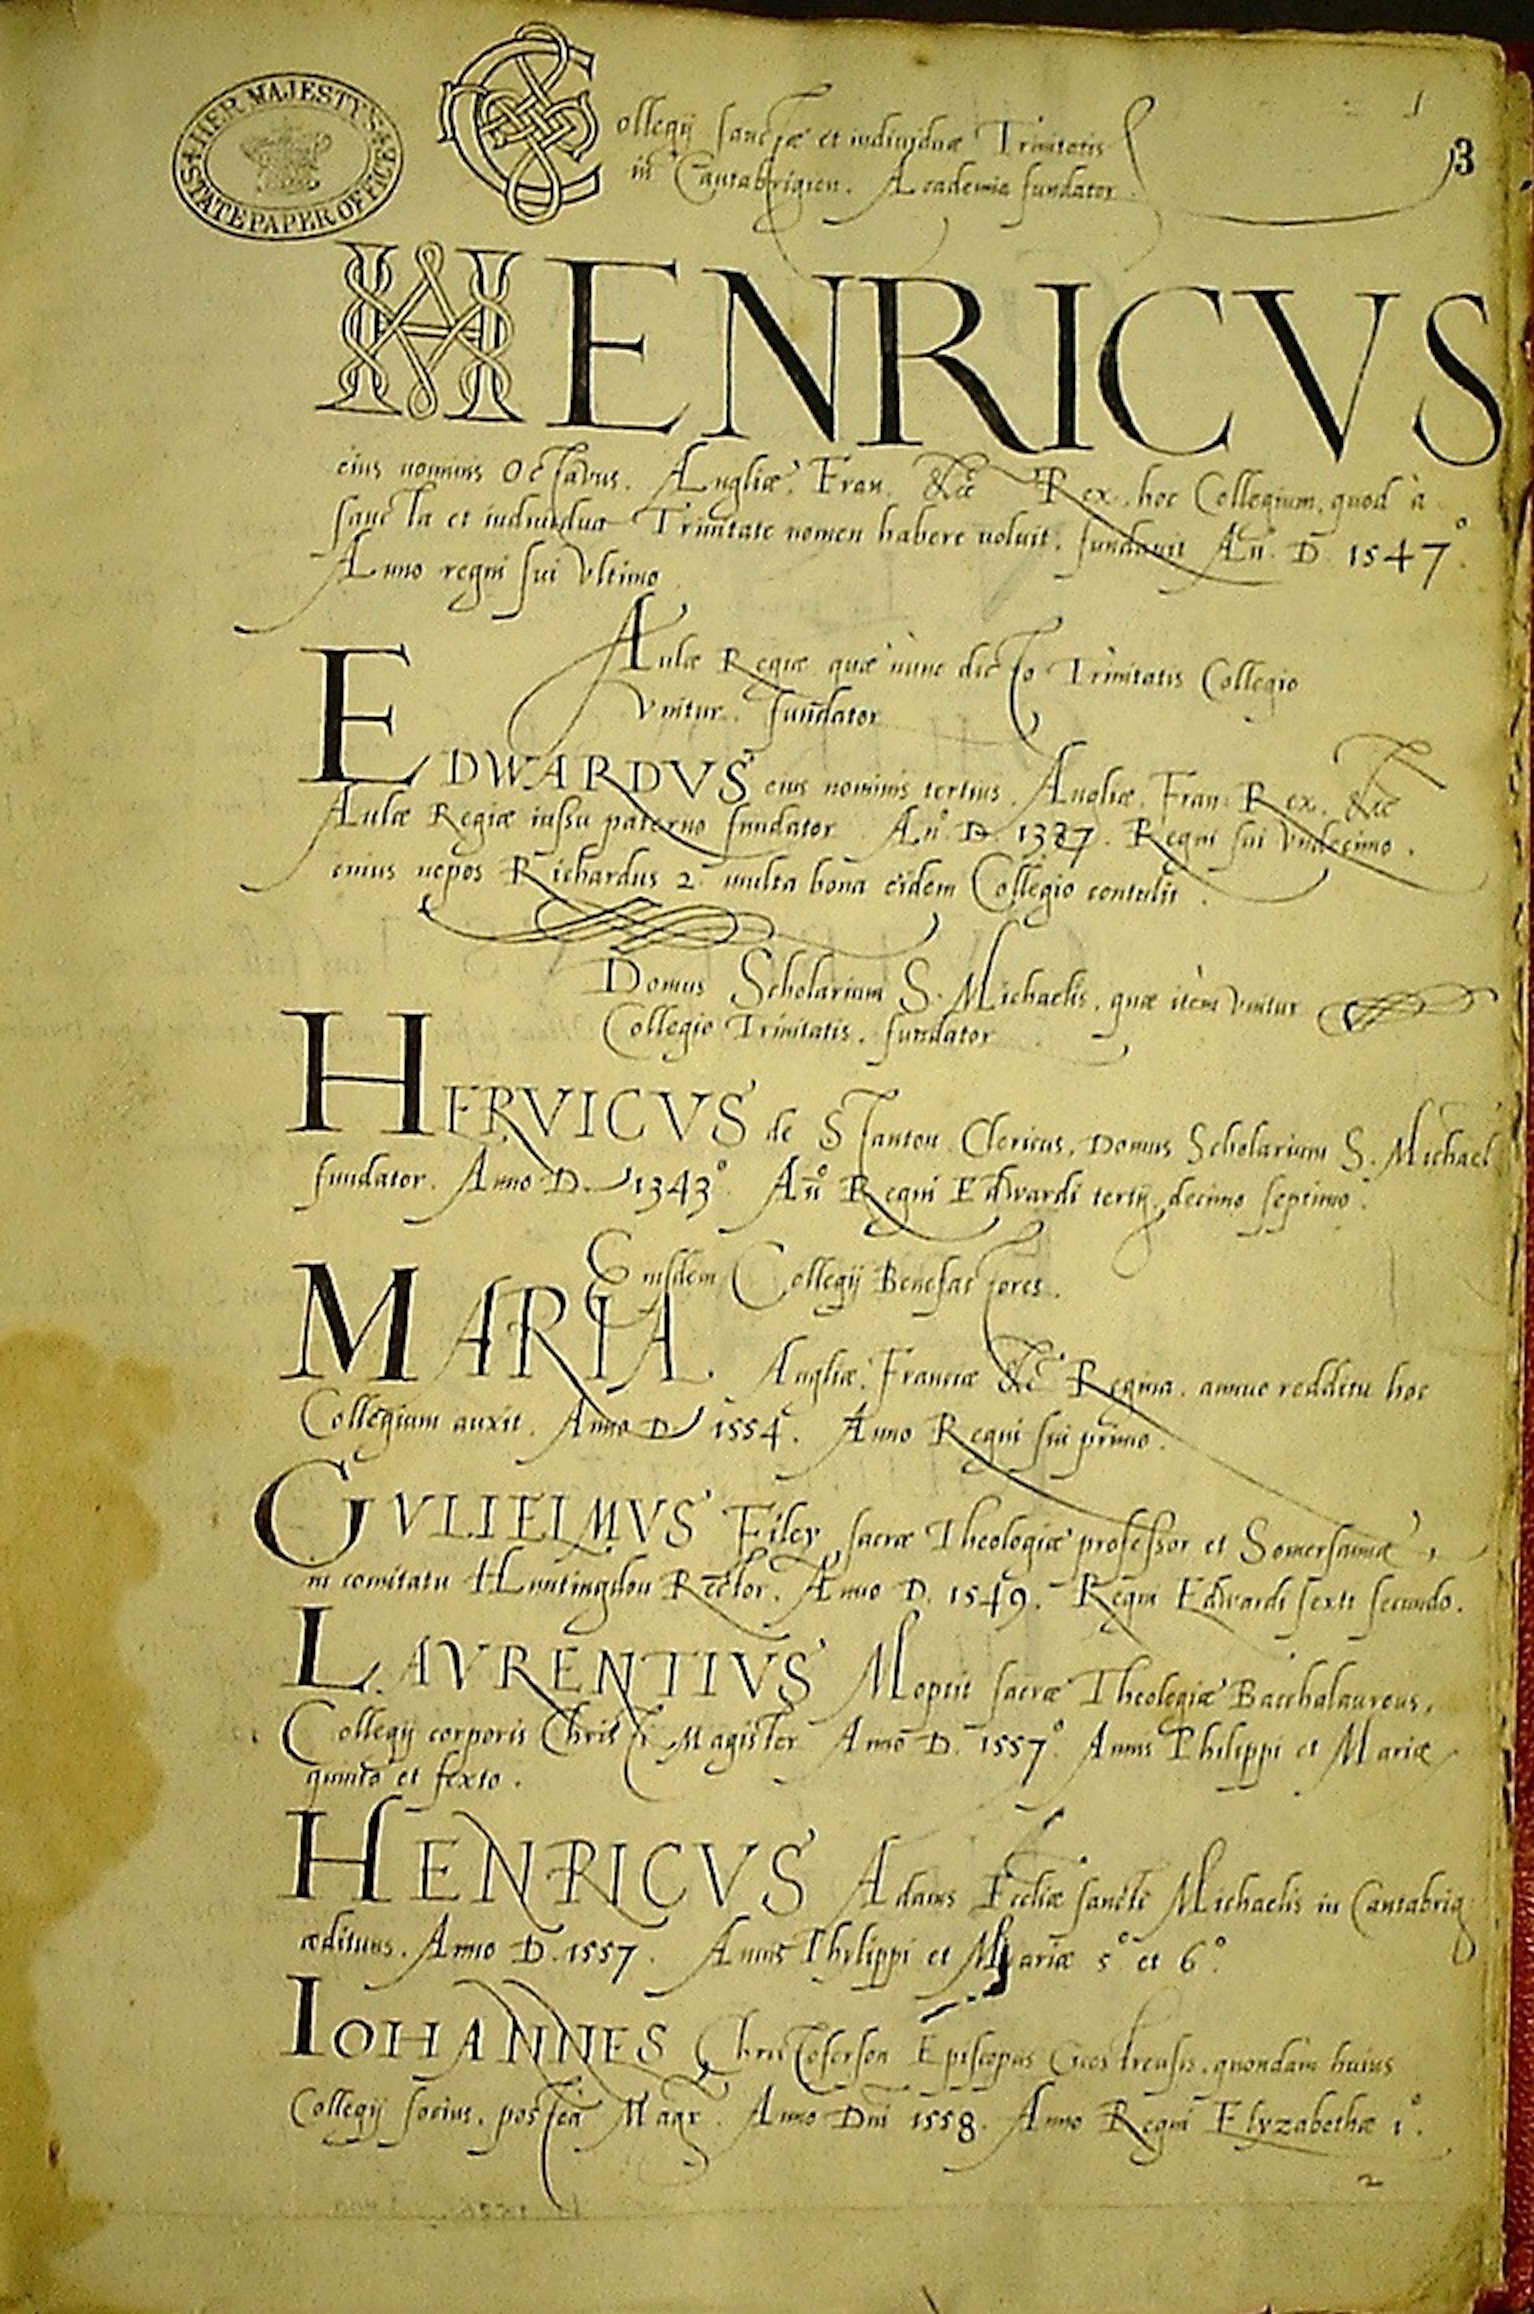 HER MAJESTY'S
STATE PAPER OFFICE
1
3
Collegij sanctæ et individuæ Trinitatis
in Cantabrigien. Academia fundator
HENRICVS
eius nominis Octavus. Angliæ, Fran. &c Rex, hoc Collegium, quod à
sancta et individua Trinitate nomen habere voluit, fundavit An. D. 1547º.
Anno regni sui Vltimo
Aulæ Regiæ quæ nunc dicto Trinitatis Collegio
Vnitur. fundator
EDWARDVS eius nominis tertius, Angliæ, Fran: Rex, &c
Aulæ Regiæ iussu paterno fundator Anº. D. 1337. Regni sui Vndecimo.
cuius nepos Richardus 2. multa bona eidem Collegio contulit.
Domus Scholarium S. Michaelis, quæ item Vnitur
Collegio Trinitatis. fundator
HERVICVS de Stanton Clericus, Domus Scholarium S. Michael
fundator. Anno D. 1343º. Anº Regni Edwardi tertij, decimo septimo.
Eiusdem Collegij Benefactores.
MARIA. Angliæ, Franciæ &c Regina, annuo redditu hoc
Collegium auxit. Anno D 1554. Anno Regni sui primo.
GVLIELMVS Filey sacræ Theologiæ professor et Somersamiæ
in comitatu Huntingdon Rector. Anno D. 1549. Regni Edwardi sexti secundo.
LAVRENTIVS Moptit sacræ Theologiæ Bacchalaureus,
Collegij corporis Christi Magister Anno D. 1557º. Annis Philippi et Mariæ
quinto et sexto.
HENRICVS Adams Eccliæ sancti Michaelis in Cantabrig
ædituus. Anno D. 1557. Annis Philippi et Mariæ 5º et 6º.
IOHANNES Christoferson Episcopus Cicestrensis, quondam huius
Collegij socius, postea Magr. Anno Dni 1558. Anno Regni Elyzabethæ 1º.
2